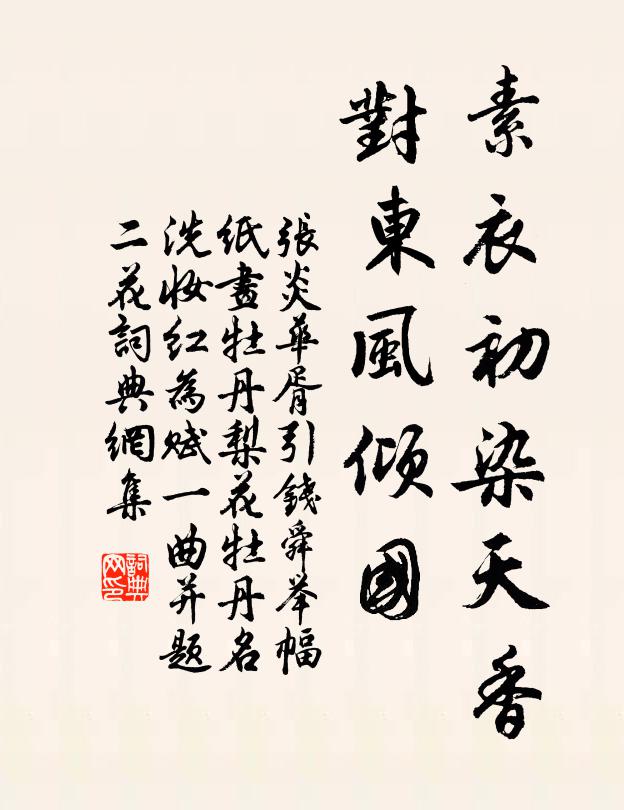 素衣初染天香
對東風傾國
張炎華胥引錢舜举幅
纸畫牡丹梨花牡丹名
洗妆红為赋一曲并题
二花詞典網集
詞典
网印